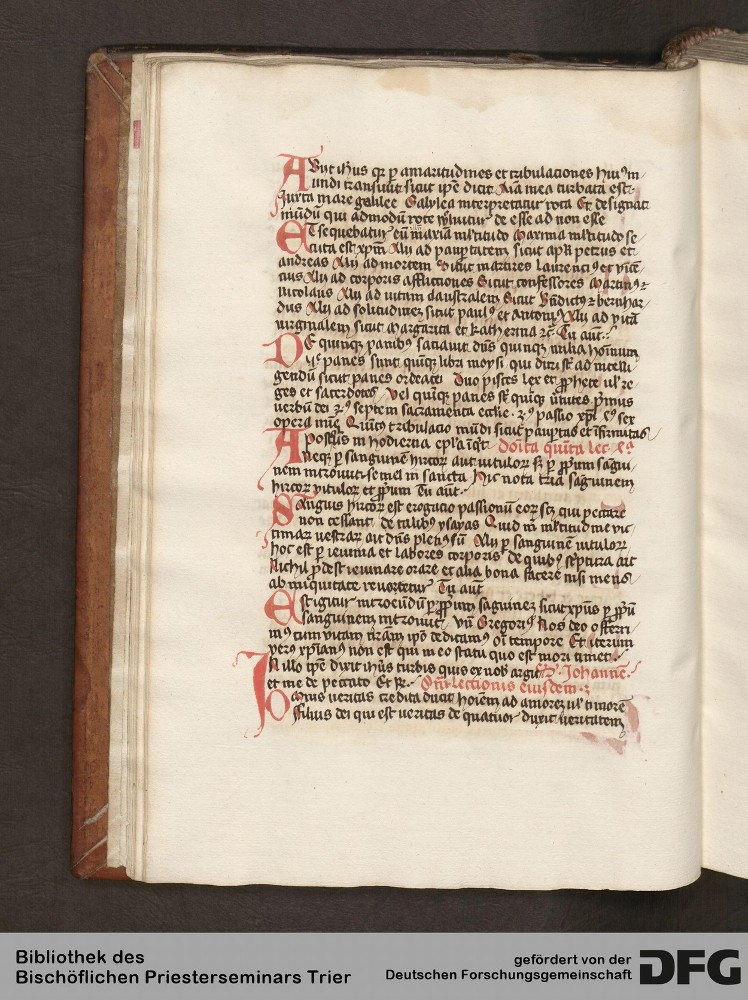 Abiit ihūs qr p amaritudines et tribulaciones huiꝰ m
undi transiuit sicut ipē dicit Aīa mea turbata est
Juxta mare galilee Galylea interpretatur rota Et designat
mūdū qui admodū rote voluitur de esse ad non esse
Et sequebatur eū maxīa mltitudo Maxima mltitudo se
cuta est xpm̄ Alij ad paupertatem sicut apli petrus et
andreas Alij ad mortem Sicut martires laurenciꝰ et vicē
cius Alij ad corporis afflictiones Sicut confessores Martinꝰ ⁊
nicolaus Alij ad vitam claustralem Sicut Bn̄dictꝰ ⁊ bernhar
dus Alij ad solitudinez sicut paulꝰ et Antoniꝰ Alij ad vitā
virginalem sicut Margareta et katherina ⁊c̄ Tu aut̄
De quinqꝫ panibꝰ saciauit dn̄s quinqꝫ milia hominum
hij panes sunt quīqꝫ libri moysi qui dicūt ad intelli
gendū sicut panes ordeacei Duo pisces lex et prophete ul' re
ges et sacerdotes Vel quīqꝫ panes st̄ quīqꝫ primus
verbū dei septem sacramenta eccl'ie passio xp̄i sex
opera tribulacio mūdi sicut paupertas et īfirmitas
Apostolus in hodierna epl'a īqt Doīca quīta lec̄
Neqꝫ p sanguinē hircorꝝ aut vitulorꝝ sꝫ p propriū sagui
nem introiuit semel in sancta Hic nota tria sanguinem
hircorꝝ vitulorꝝ et propriū Tu aut̄
Sanguis hircorꝝ est erogacio passionū eorꝝ scꝫ qui peccare
non cessant de talibꝰ ysayas Quid m mltitudine vic
timarꝝ vestrarꝝ ait dn̄s plenꝰ sū Alij p sanguinē vitulorꝝ
hoc est p ieiunia et labores corporis de quibꝰ scptura ait
Nichil prodest ieiunare orare et alia bona facere nisi mens
ab iniquitate reuocetur Tu aut̄
Est igitur introeūdū p propriū saguinez sicut xpūs p propriū
sanguinem introiuit Vn̄ Gregoriꝰ Nos deo offerri
mꝰ cum vitam nr̄am ipō dedicamꝰ oī tempore Et iterum
verꝰ xp̄ianꝰ non est qui in eo statu quo est mori timet
In illo tpē dixit ihūs turbis quis ex nob arguet Johannē
et me de peccato Et rꝭ lectionis eiusdem
Omnis veritas credita ducit hoīem ad amorez ul' timorē
ffilius dei qui est veritas de quatuor dixit veritatem
Bibliothek des
Bischöflichen Priesterseminars Trier
gefördert von der
Deutschen Forschungsgemeinschaft
DFG